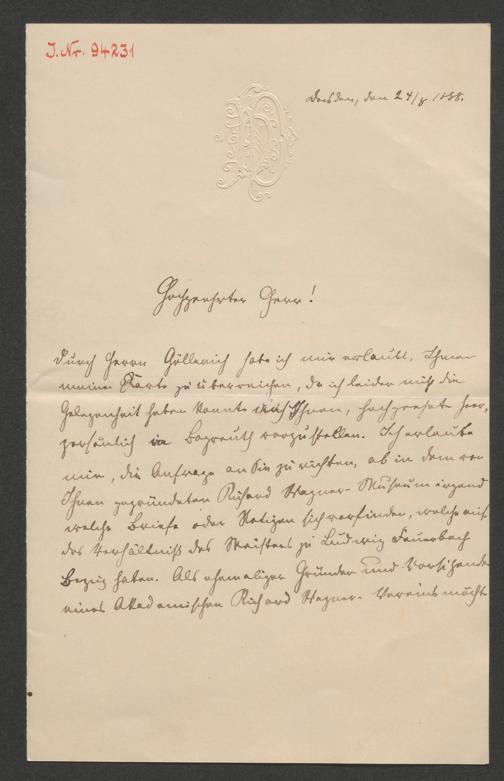 J.Nr. 94231
Dresden, den 24/8 1888.
Hochgeehrter Herr!
Durch Herrn Göllerich habe ich mir erlaubt, Ihnen
meine Karte zu überreichen, da ich leider nicht die
Gelegenheit haben konnte mich Ihnen, hochgeehrter Herr,
persönlich in Bayreuth vorzustellen. Ich erlaube
mir, die Anfrage an Sie zu richten, ob in dem von
Ihnen gegründeten Richard Wagner-Museum irgend
welche Briefe oder Notizen sich vorfinden, welche auf
das Verhältniß des Meisters zu Ludwig Feuerbach
Bezug haben. Als ehemaliger Gründer und Vorsitzender
eines Akademischen Richard Wagner-Vereins möchte